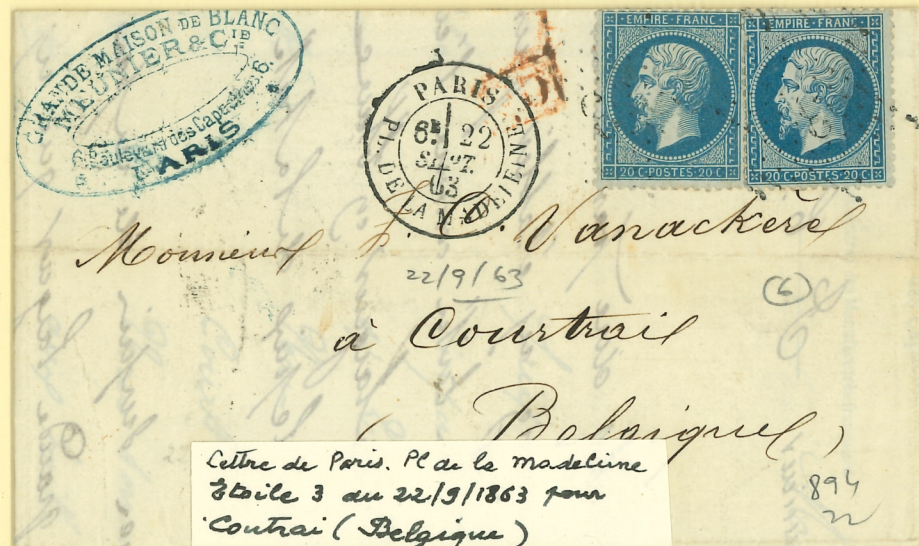 GRANDE MAISON DE BLANC
MEUNIER & CIE
6. Boulevard des Capucines 6.
PARIS
PARIS
6E 22
SEPT.
63
PL. DE LA MADELEINE
EMPIRE FRANC
20 C · POSTES · 20 C
EMPIRE FRANC
20 C · POSTES · 20 C
Monsieur Vanackère
22/9/63
6
à Courtrai
Belgique
894
22
Lettre de Paris. Pl de la Madeleine
Etoile 3 du 22/9/1863 pour
Coutrai (Belgique)